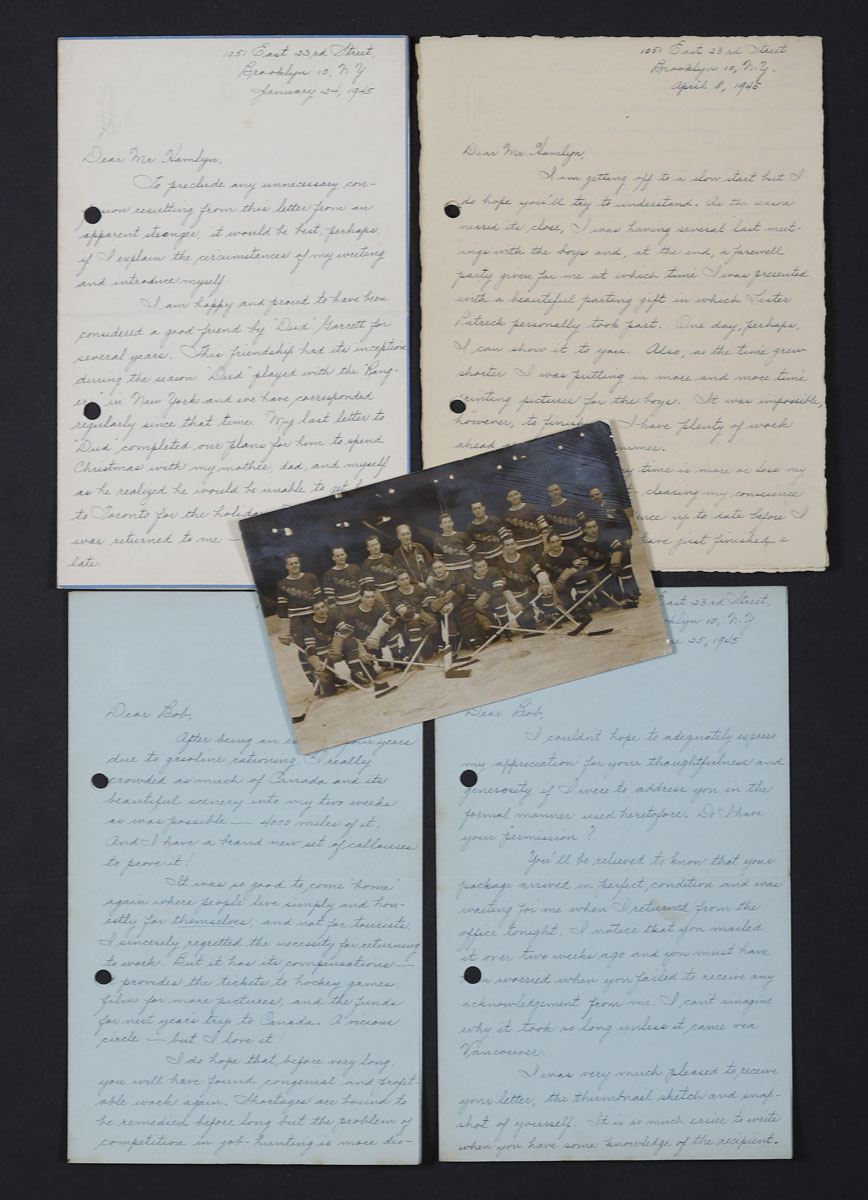 1051 East 23rd Street,
Brooklyn 10, N.Y.
January 24, 1945
Dear Mr. Hamlyn,
To preclude any unnecessary con-
sion resulting from this letter from an
apparent stranger, it would be best, perhaps,
if I explain the circumstances of my writing
and introduce myself.
I am happy and proud to have been
considered a good friend by "Dud" Garrett for
several years. This friendship had its inception
during the season "Dud" played with the "Rang-
ers" in New York and we have corresponded
regularly since that time. My last letter to
"Dud" completed our plans for him to spend
Christmas with my mother, dad, and myself
as he realized he would be unable to get
to Toronto for the holida
was returned to me —
late.
1051 East 23rd Street
Brooklyn 10, N.Y.
April 8, 1945
Dear Mr. Hamlyn,
I am getting off to a slow start but I
do hope you'll try to understand. As the season
neared its close, I was having several last meet-
ings with the boys and, at the end, a farewell
party given for me at which time I was presented
with a beautiful parting gift in which Lester
Patrick personally took part. One day, perhaps,
I can show it to you. Also, as the time grew
shorter I was putting in more and more time
printing pictures for the boys. It was impossible,
however, to finish I have plenty of work
ahead mmer.
y time is more or less my
- clearing my conscience
nce up to date before I
have just finished a
Dear Bob,
After being an four years
due to gasoline rationing, I really
crowded as much of Canada and its
beautiful scenery into my two weeks
as was possible — 4000 miles of it.
And I have a brand new set of callouses
to prove it!
It was so good to come "home"
again where people live simply and hon-
estly for themselves, and not for tourists.
I sincerely regretted the necessity for returning
to work. But it has its compensations —
provides the tickets to hockey games,
film for more pictures, and the funds
for next year's trip to Canada. A vicious
circle — but I love it!
I do hope that, before very long,
you will have found congenial and profit-
able work again. Shortages are bound to
be remedied before long but the problem of
competition in job-hunting is more dis-
East 23rd Street,
oklyn 10, N.Y.
25, 1945
Dear Bob,
I couldn't hope to adequately express
my appreciation for your thoughtfulness and
generosity if I were to address you in the
formal manner used heretofore. Do I have
your permission?
You'll be relieved to know that your
package arrived in perfect condition and was
waiting for me when I returned from the
office tonight. I notice that you mailed
it over two weeks ago and you must have
worried when you failed to receive any
acknowledgement from me. I can't imagine
why it took so long unless it came via
Vancouver.
I was very much pleased to receive
your letter, the thumbnail sketch and snap-
shot of yourself. It is so much easier to write
when you have some knowledge of the recipient.